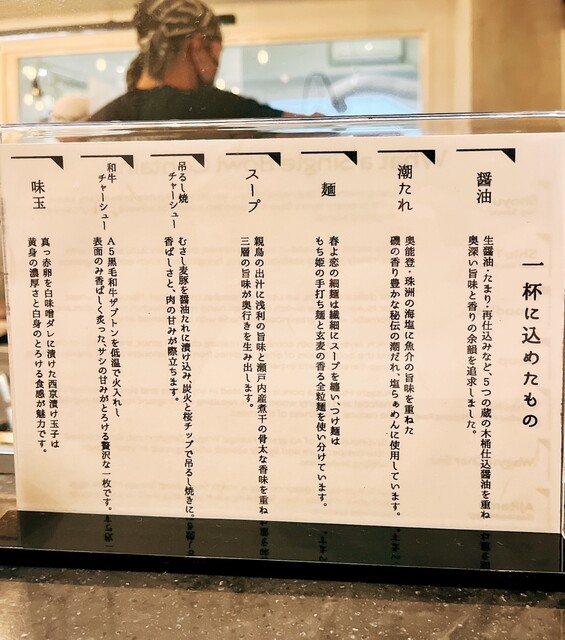 一杯に込めたもの
醤油
生醤油・たまり・再仕込みなど、5つの蔵の木桶仕込醤油を重ね
奥深い旨味と香りの余韻を追求しました。
潮たれ
奥能登・珠洲の海塩に魚介の旨味を重ねた
磯の香り豊かな秘伝の潮だれ、塩らぁめんに使用しています。
麺
春よ恋の細麺は繊細にスープを纏い、つけ麺は
もち姫の手打ち麺と玄麦の香る全粒麺を使い分けています。
スープ
親鳥の出汁に浅利の旨味と瀬戸内産煮干の骨太な香味を重ね
三層の旨味が奥行きを生み出します。
吊るし焼
チャーシュー
むさし麦豚を醤油たれに漬け込み、炭火と桜チップで吊るし焼きに。
香ばしさと、肉の甘みが際立ちます。
和牛
チャーシュー
A5黒毛和牛ザブトンを低温で火入れし
表面のみ香ばしく炙った、サシの甘みがとろける贅沢な一枚です。
味玉
真っ赤卵を白味噌ダレに漬けた西京漬け玉子は
黄身の濃厚さと白身のとろける食感が魅力です。